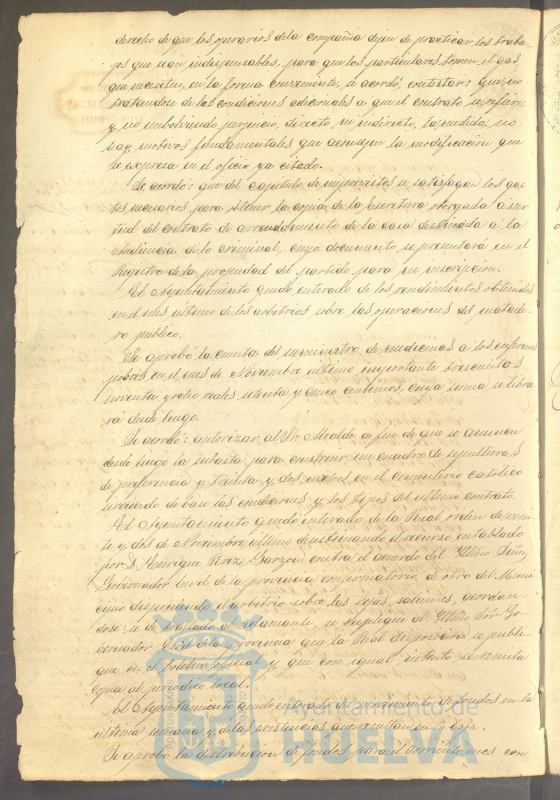 derecho de que los operarios de la compañía dejen de practicar los traba-
jos que sean indispensables, para que los particulares tomen el gas
que necesiten, en la forma conveniente, se acordó, contestar: que, no
tratandose de las condiciones adicionales a que el contrato se refiere
y no envolviendo perjuicio, directo, ni indirecto, la medida, no
hay motivos fundamentales que aconsejen la modificacion que
se expresa en el oficio ya citado.
Se acordó: que del capítulo de imprevistos se satisfagan los gas-
tos necesarios para obtener la copia de la escritura otorgada a vir-
tud del contrato de arrendamiento de la casa destinada a la
Audiencia de lo criminal, cuyo documento, se presentará en el
Registro de la propiedad del partido para su inscripcion.
El Ayuntamiento quedó enterado de los rendimientos obtenidos
en el mes último de los arbitrios sobre las operaciones del matade-
ro publico.
Se aprobó la cuenta del suministro de medicinas a los enfermos
pobres en el mes de Noviembre último importante trescientos
sesenta y ocho reales setenta y cinco centimos cuya suma se libra-
rá desde luego.
Se acordó: autorizar al Sr. Alcalde a fin de que se anuncie
desde luego la subasta para construir un cuadro de sepulturas
de preferencia y treinta y dos nichos en el cementerio católico
sirviendo de base las condiciones y los tipos del último contrato.
El Ayuntamiento quedó enterado de la Real orden de vein-
te y dos de Noviembre último desestimando el recurso entablado
por D. Enrique Perez Garzon contra el acuerdo del Ilmo Señor
Gobernador Civil de la provincia confirmatorio, de otro del Muni-
cipio disponiendo el arbitrio sobre las rejas salientes, acordan-
dose: se de traslado al reclamante, se suplique al Ilmo Sor Go-
bernador Civil de la provincia que la Real disposicion se publi-
que en el Boletin oficial y que con igual intento se remita
copia al periodico local.
El Ayuntamiento quedó enterado del movimiento de fondos en la
última semana y de las existencias que resultan en la Caja.
Se aprobó la distribucion de fondos para el corriente mes con
Ayuntamiento de
HUELVA